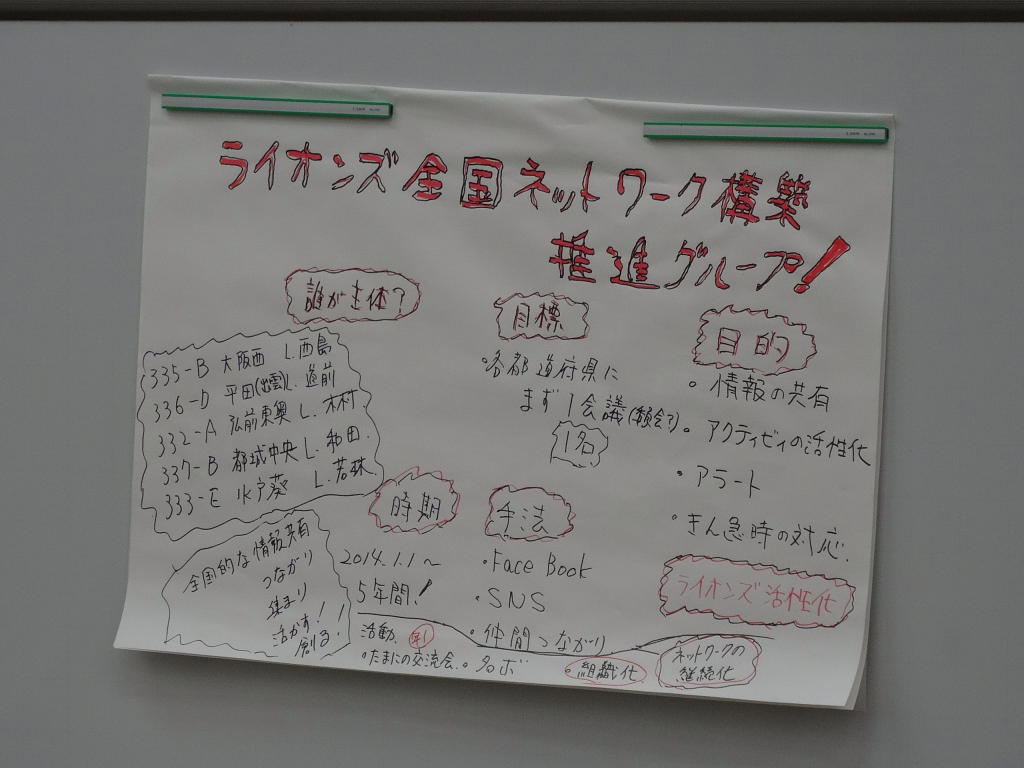 ライオンズ全国ネットワーク構築
推進グループ!
誰が主体?
335-B 大阪西 L.西島
336-D 平田(出雲)L.
332-A 弘前東奥 L.木村
337-B 都城中央 L.和田.
333-E 水戸葵 L.若林
全国的な情報共有
つながり
集まり
活かす!
創る!
時期
2014.1.1~
5年間!
目標
・各都道府県に
まず1会議
1名
手法
・Face Book
・SNS
・仲間つながり
目的
・情報の共有
・アクティビィの活性化
・アラート
・きん急時の対応.
ライオンズ活性化
活動. 年1
・たまにの交流会.
・組織化
ネットワークの
継続化